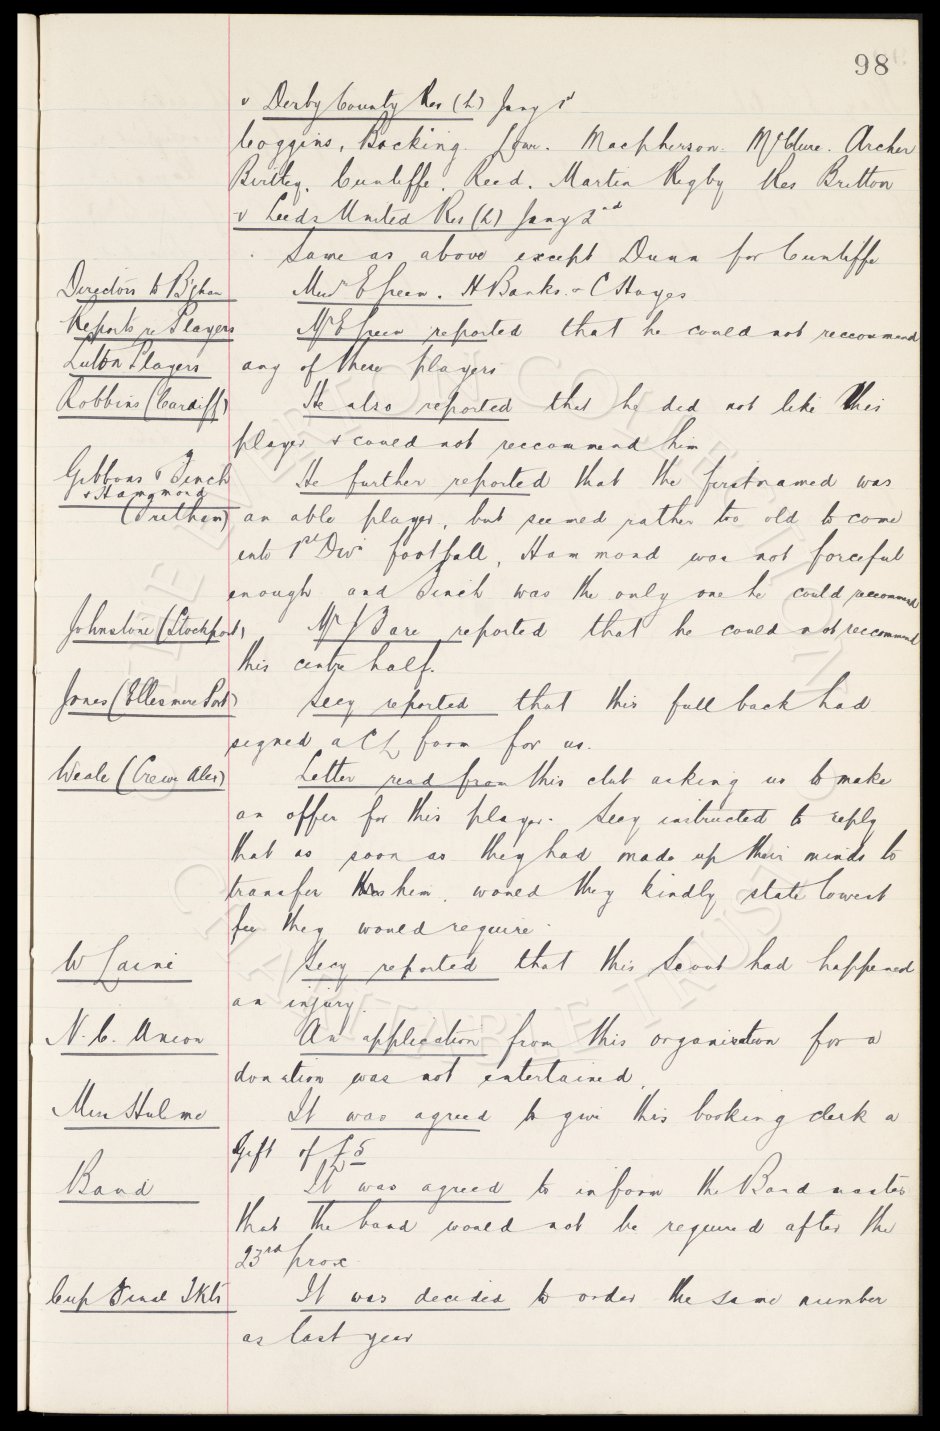 98
v Derby County Res (h) Jany 1st
Coggins, Bocking. Lowe. Macpherson. McClure. Archer
Birtley, Cunliffe, Reed, Martin Rigby Res Britton
v Leeds United Res (h) Jany 2nd
Same as above except Dunn for Cunliffe
Directors to B'ham Messrs E Green. H Banks. & C Hayes
Reports re Players Mr E Green reported that he could not reccommend
Luton Players any of these players
Robbins (Cardiff) He also reported that he did not like this
player & could not reccommend him
Gibbons & Finch He further reported that the first named was
& Hammond
(Fulham) an able player, but seemed rather too old to come
into 1st Divn football, Hammond was not forceful
enough and Finch was the only one he could reccommend
Johnstone (Stockport) Mr J Fare reported that he could not reccommend
this centre half.
Jones (Ellesmere Port) Secy reported that this full back had
signed a CL form for us.
Weale (Crewe Alex) Letter read from this club asking us to make
an offer for this player. Secy instructed to reply
that as soon as they had made up their minds to
transfer him, would they kindly state lowest
fee they would require.
W Laine Secy reported that this Scout had happened
an injury.
N. C. Union An application from this organisation for a
donation was not entertained.
Miss Hulme It was agreed to give this booking clerk a
Gift of £5
Band It was agreed to inform the Band master
that the band would not be required after the
23rd prox
Cup Final Tkts It was decided to order the same number
as last year